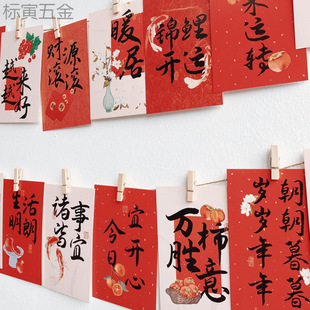 标寅五金
越来
越好
财源
滚滚
暖居
锦鲤
开运
来
运转
生活
明朗
诸事
皆宜
今日
宜开心
万柿
胜意
朝朝暮暮
岁岁年年